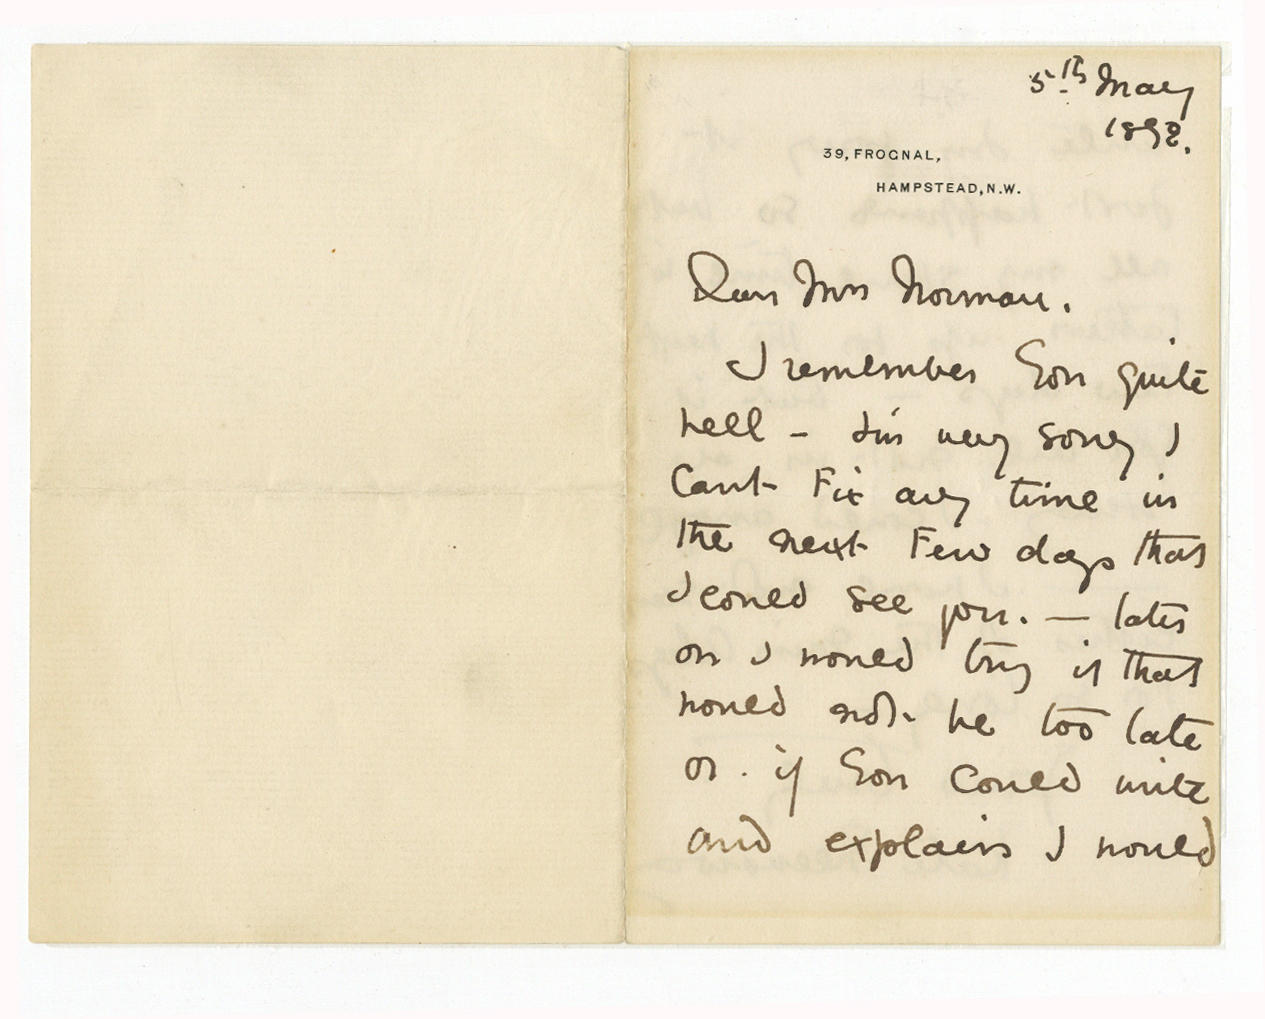 5th May
1898.
39, FROGNAL,
HAMPSTEAD, N.W.
Dear Mrs Norman.
I remember you quite
well – I'm very sorry I
Cant Fix any time in
the next Few days that
I could see you. — later
on I would try if that
would not be too late
or. if you could write
and explain I would